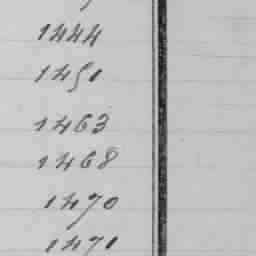 1444
1450
1463
1468
1470
1471